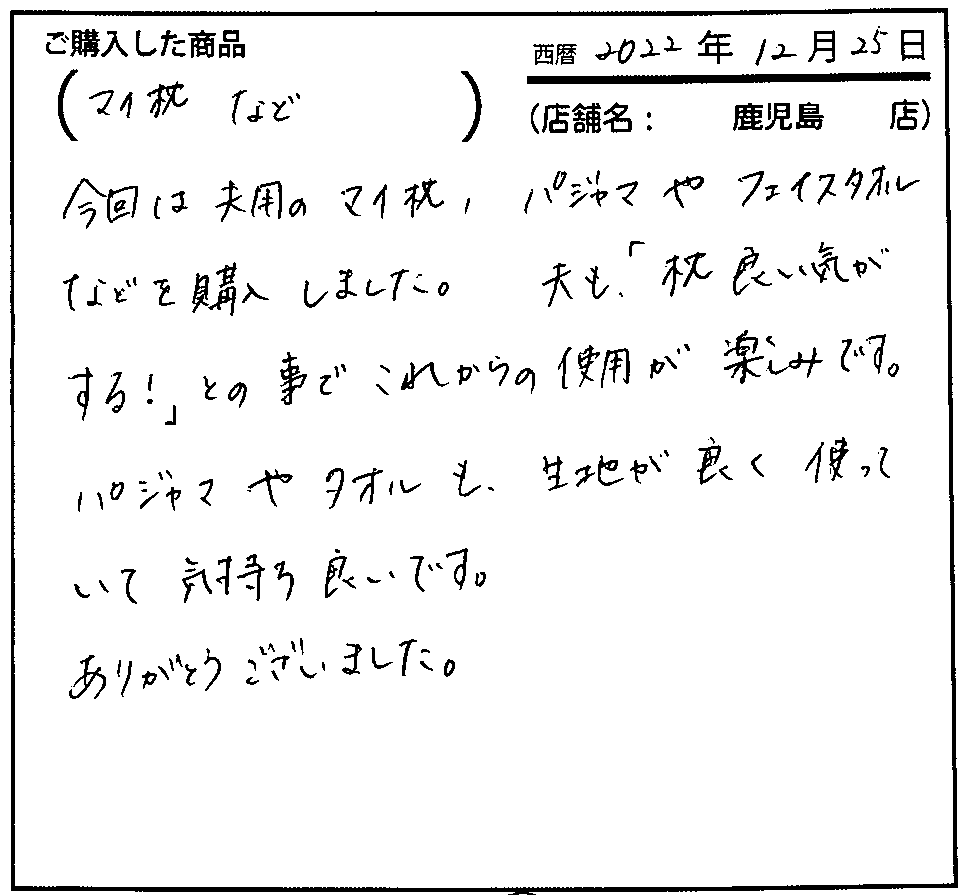 ご購入した商品
西暦 2022年 12月 25日
(マイ枕 など)
(店舗名： 鹿児島 店)
今回は 夫用の マイ枕, パジャマ や フェイスタオル
などを 購入 しました。 夫も、「枕 良い気が
する!」との 事で これからの 使用が 楽しみです。
パジャマ や タオル も、生地が 良く 使って
いて 気持ち 良いです。
ありがとう ございました。